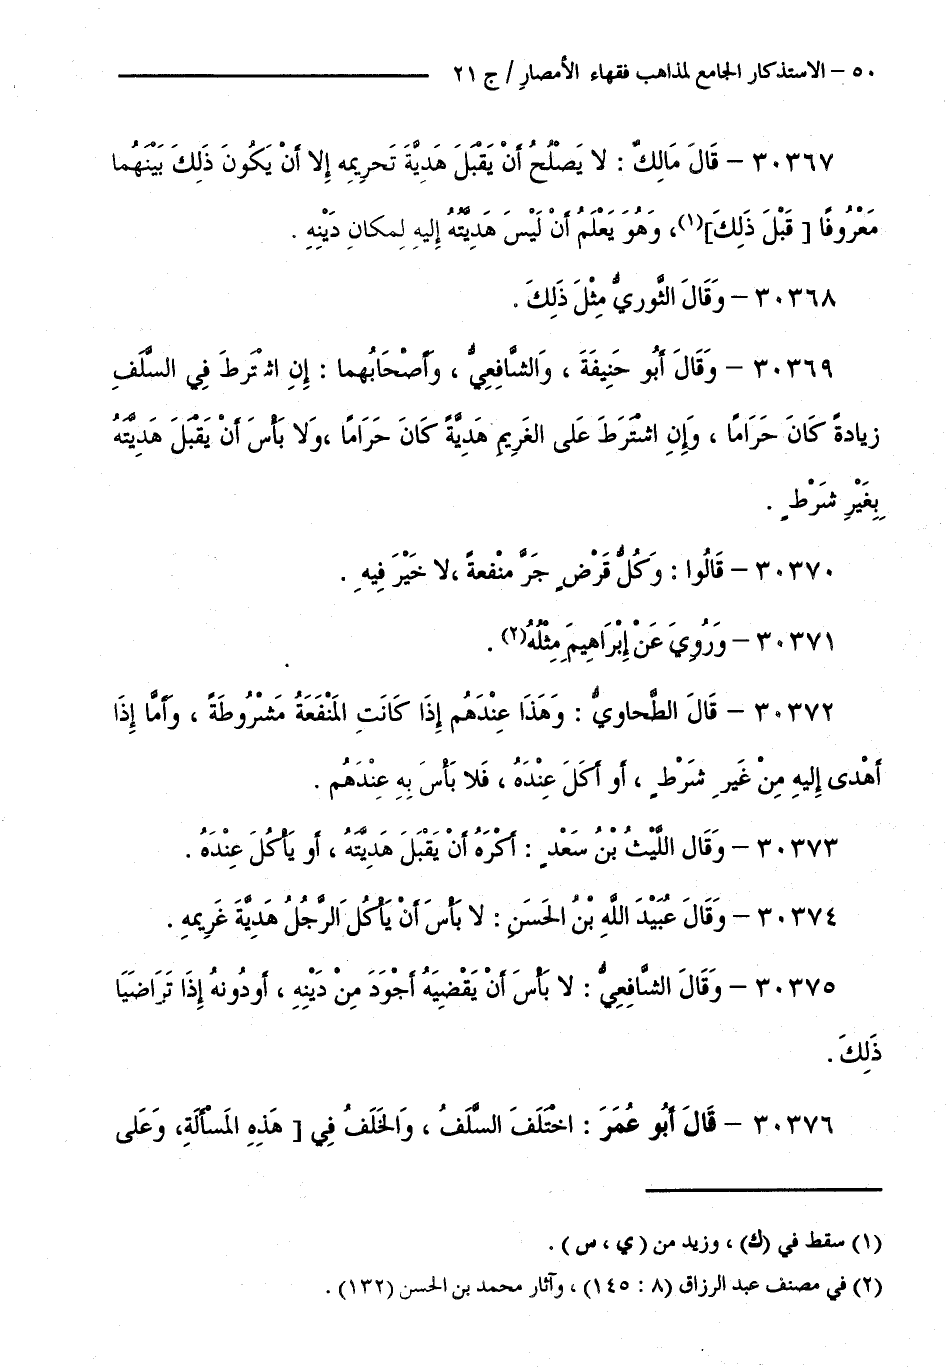 ٥٠ – الاستذكار الجامع لمذاهب فقهاء الأمصارِ / ج ٢١
٣٠٣٦٧ – قَالَ مَالِكٌ : لا يَصْلُحُ أَنْ يَقْبَلَ هَدِيَّةَ تَحرِيمِه إِلا أَنْ يَكُونَ ذَلِكَ بَيْنَهُما
مَعْرُوفًا [ قَبْلَ ذَلِكَ](١)، وَهُوَ يَعْلَمُ أَنْ لَيْسَ هَدِيَّتُهُ إِليهِ لِمكانِ دَيْنِهِ .
٣٠٣٦٨ – وَقَالَ الثَّوريُّ مِثْلَ ذَلِكَ .
٣٠٣٦٩ – وَقَالَ أَبُو حَنِيفَةَ ، وَالشَّافِعِيُّ ، وأَصْحَابُهما : إِنِ اشْتَرطَ فِي السَّلَفِ
زيادةً كَانَ حَرَامًا ، وَإِنِ اشْتَرَطَ عَلى الغَرِيمِ هَدِيَّةً كَانَ حَرَامًا ،وَلا بَأْسَ أَنْ يَقْبَلَ هَدِيَّتَهُ
بِغَيْرِ شَرْطٍ .
٣٠٣٧٠ – قَالُوا : وَكُلُّ قَرْضٍ جَرَّ منْفعةً ،لا خَيْرَ فِيهِ .
٣٠٣٧١ – وَرُوِيَ عَنْ إِبْرَاهِيمَ مِثْلُهُ(٢) .
٣٠٣٧٢ – قَالَ الطَّحاويُّ : وَهَذَا عِنْدَهُم إِذَا كَانَتِ المَنْفَعَةُ مَشْرُوطَةً ، وَأَمَّا إِذَا
أَهْدى إِليهِ مِنْ غَيرِ شَرْطٍ ، أو أَكَلَ عِنْدَهُ ، فَلا بَأْسَ بِهِ عِنْدَهُم .
٣٠٣٧٣ – وَقَال اللَّيْثُ بْنُ سَعْدٍ : أَكْرَهُ أَنْ يَقْبَلَ هَدِيَّتَهُ ، أو يَأْكُلَ عِنْدَهُ .
٣٠٣٧٤ – وَقَالَ عُبَيْدَ اللَّهِ بْنُ الحَسَنِ : لا بَأْسَ أَنْ يَأْكُلَ الرَّجُلُ هَدِيَّةَ غَرِيمِهِ .
٣٠٣٧٥ – وَقَالَ الشَّافِعِيُّ : لا بَأْسَ أَنْ يَقْضِيَهُ أَجْوَدَ مِنْ دَيْنِهِ ، أَودُونهُ إِذَا تَرَاضَيَا
ذَلِكَ .
٣٠٣٧٦ – قَالَ أَبُو عُمَرَ : اخْتَلَفَ السَّلَفُ ، وَالخَلَفُ فِي [ هَذِهِ المَسْأَلَةِ، وَعَلى
(١) سقط في (ك) ، وزيد من ( ي ، س ) .
(٢) في مصنف عبد الرزاق (٨ : ١٤٥) ، وآثار محمد بن الحسن (١٣٢) .